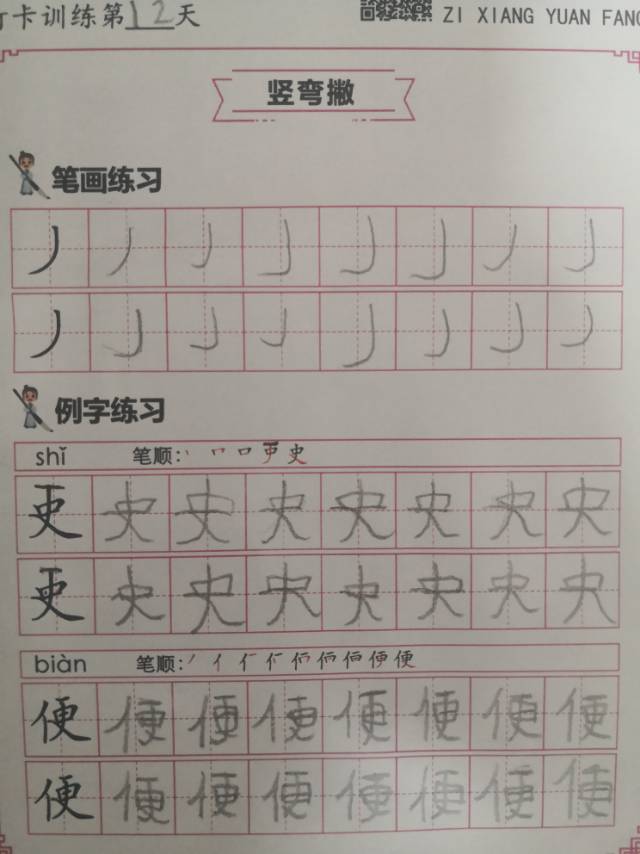 打卡训练第12天 ZI XIANG YUAN FANG
竖弯撇
笔画练习
丿 丿 丿 丿 丿 丿 丿 丿
丿 丿 丿 丿 丿 丿 丿 丿
例字练习
shǐ 笔顺: 史
史 史 史 史 史 史 史 史
史 史 史 史 史 史 史 史
biàn 笔顺: 便
便 便 便 便 便 便 便 便
便 便 便 便 便 便 便 便